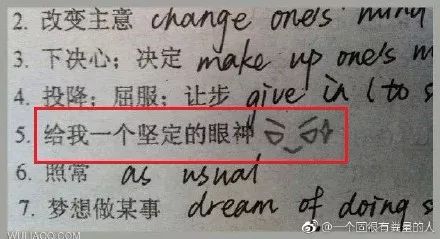 2. 改变主意 change one's mind
3. 下决心；决定 make up one's m
4. 投降；屈服；让步 give in (to s
5. 给我一个坚定的眼神
6. 照常 as usual
7. 梦想做某事 dream of doing s
WULIAOO.COM
@一个固很有劵量的人